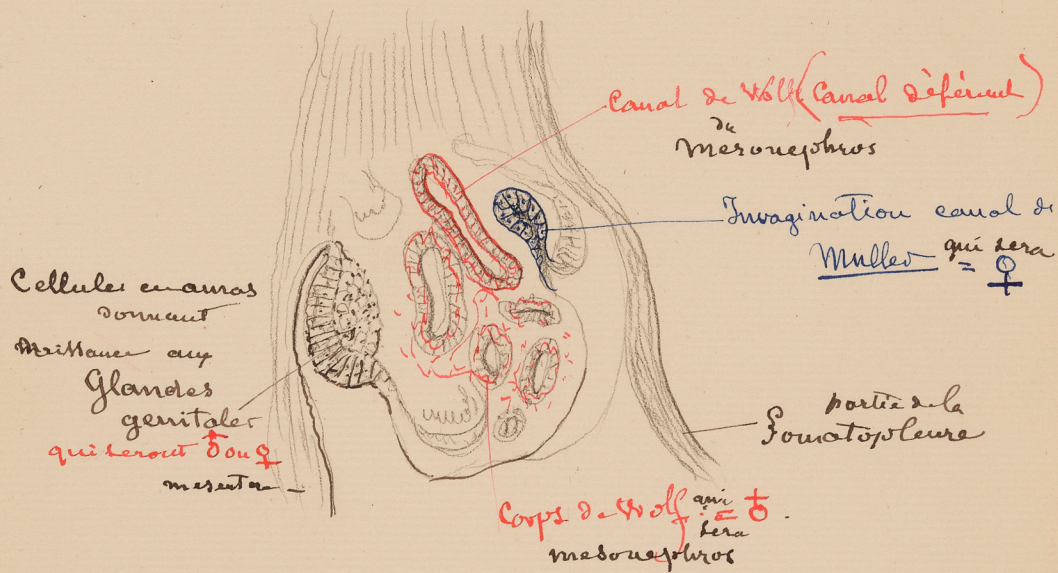 Canal de Wolf (Canal déférent)
du
mesonephros
Invagination canal de
Muller qui sera
= ♀
Cellules en amas
donnant
naissance aux
Glandes
genitales
qui seront ♂ ou ♀
mesentere
partie de la
Somatopleure
Corps de Wolf qui = ♂.
sera
mesonephros